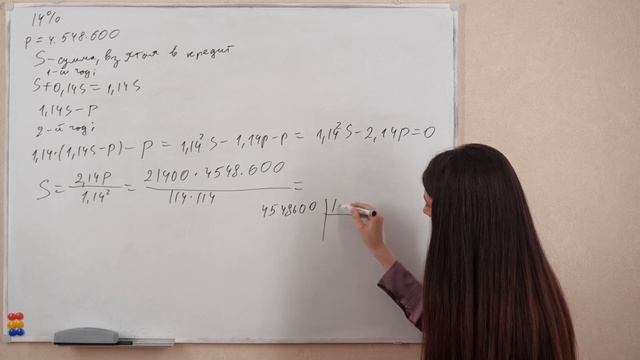 14%
p = 4.548.600
S-сумма, взятая в кредит
1-й год:
S+0,14S = 1,14S
1,14S-P
2-й год:
1,14·(1,14S-P)-P = 1,14²S-1,14P-P = 1,14²S-2,14P=0
S = 2,14P / 1,14² = 21400·4548.600 / 114·114 =
4548600 | 1